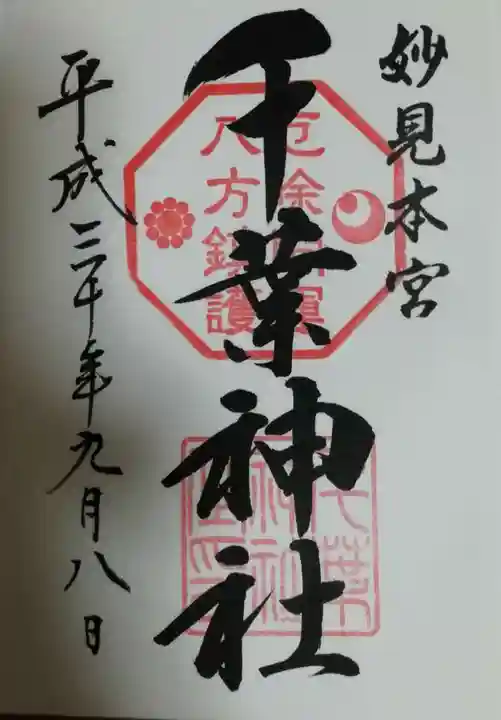 妙見本宮
千葉神社
厄除開運
八方鎮護
千葉
神社
平成三十年九月八日